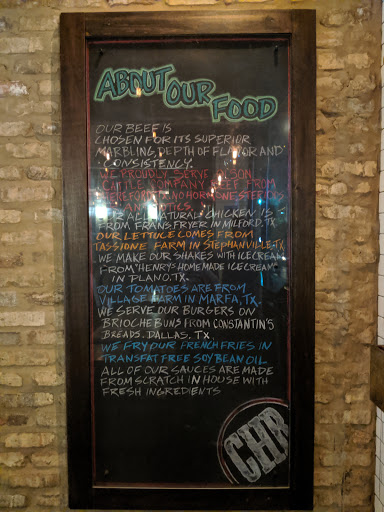 ABOUT OUR FOOD
OUR BEEF IS
CHOSEN FOR ITS SUPERIOR
MARBLING, DEPTH OF FLAVOR AND
CONSISTENCY.
WE PROUDLY SERVE
CATTLE COMPANY BEEF FROM
HEREFORD, TX. NO HORMONES STEROIDS
ANTIBIOTICS.
ALL NATURAL CHICKEN IS
FROM FRANS FRYER IN MILFORD, TX
OUR LETTUCE COMES FROM
TASSIONE FARM IN STEPHANVILLE, TX
WE MAKE OUR SHAKES WITH ICE CREAM
FROM "HENRY'S HOMEMADE ICE CREAM"
IN PLANO, TX.
OUR TOMATOES ARE FROM
VILLAGE FARM IN MARFA, TX.
WE SERVE OUR BURGERS ON
BRIOCHE BUNS FROM CONSTANTIN'S
BREADS. DALLAS, TX.
WE FRY OUR FRENCH FRIES IN
TRANSFAT FREE SOYBEAN OIL
ALL OF OUR SAUCES ARE MADE
FROM SCRATCH IN HOUSE WITH
FRESH INGREDIENTS
CHB